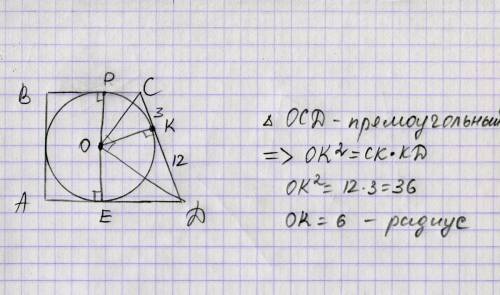 P
B
C
3
K
O
12
A
E
D
Δ OCD - прямоугольный
=> OK² = CK · KD
OK² = 12 · 3 = 36
OK = 6 - радиус